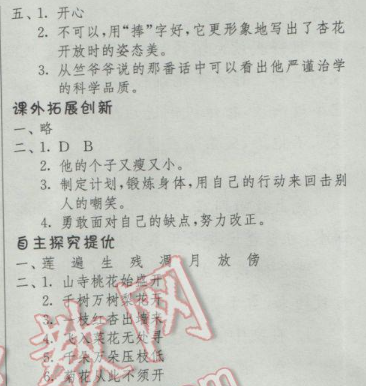 五、1. 开心
2. 不可以,用“捧”字好,它更形象地写出了杏花
开放时的姿态美。
3. 从竺爷爷说的那番话中可以看出他严谨治学
的科学品质。
课外拓展创新
一、略
二、1. D B
2. 他的个子又瘦又小。
3. 制定计划,锻炼身体,用自己的行动来回击别
人的嘲笑。
4. 勇敢面对自己的缺点,努力改正。
自主探究提优
一、莲 遍 生 残 凋 月 放 傍
二、1. 山寺桃花始盛开
2. 千树万树梨花开
3. 一枝红杏出墙来
4. 飞入菜花无处寻
5. 千朵万朵压枝低
6. 菊花从此不须开